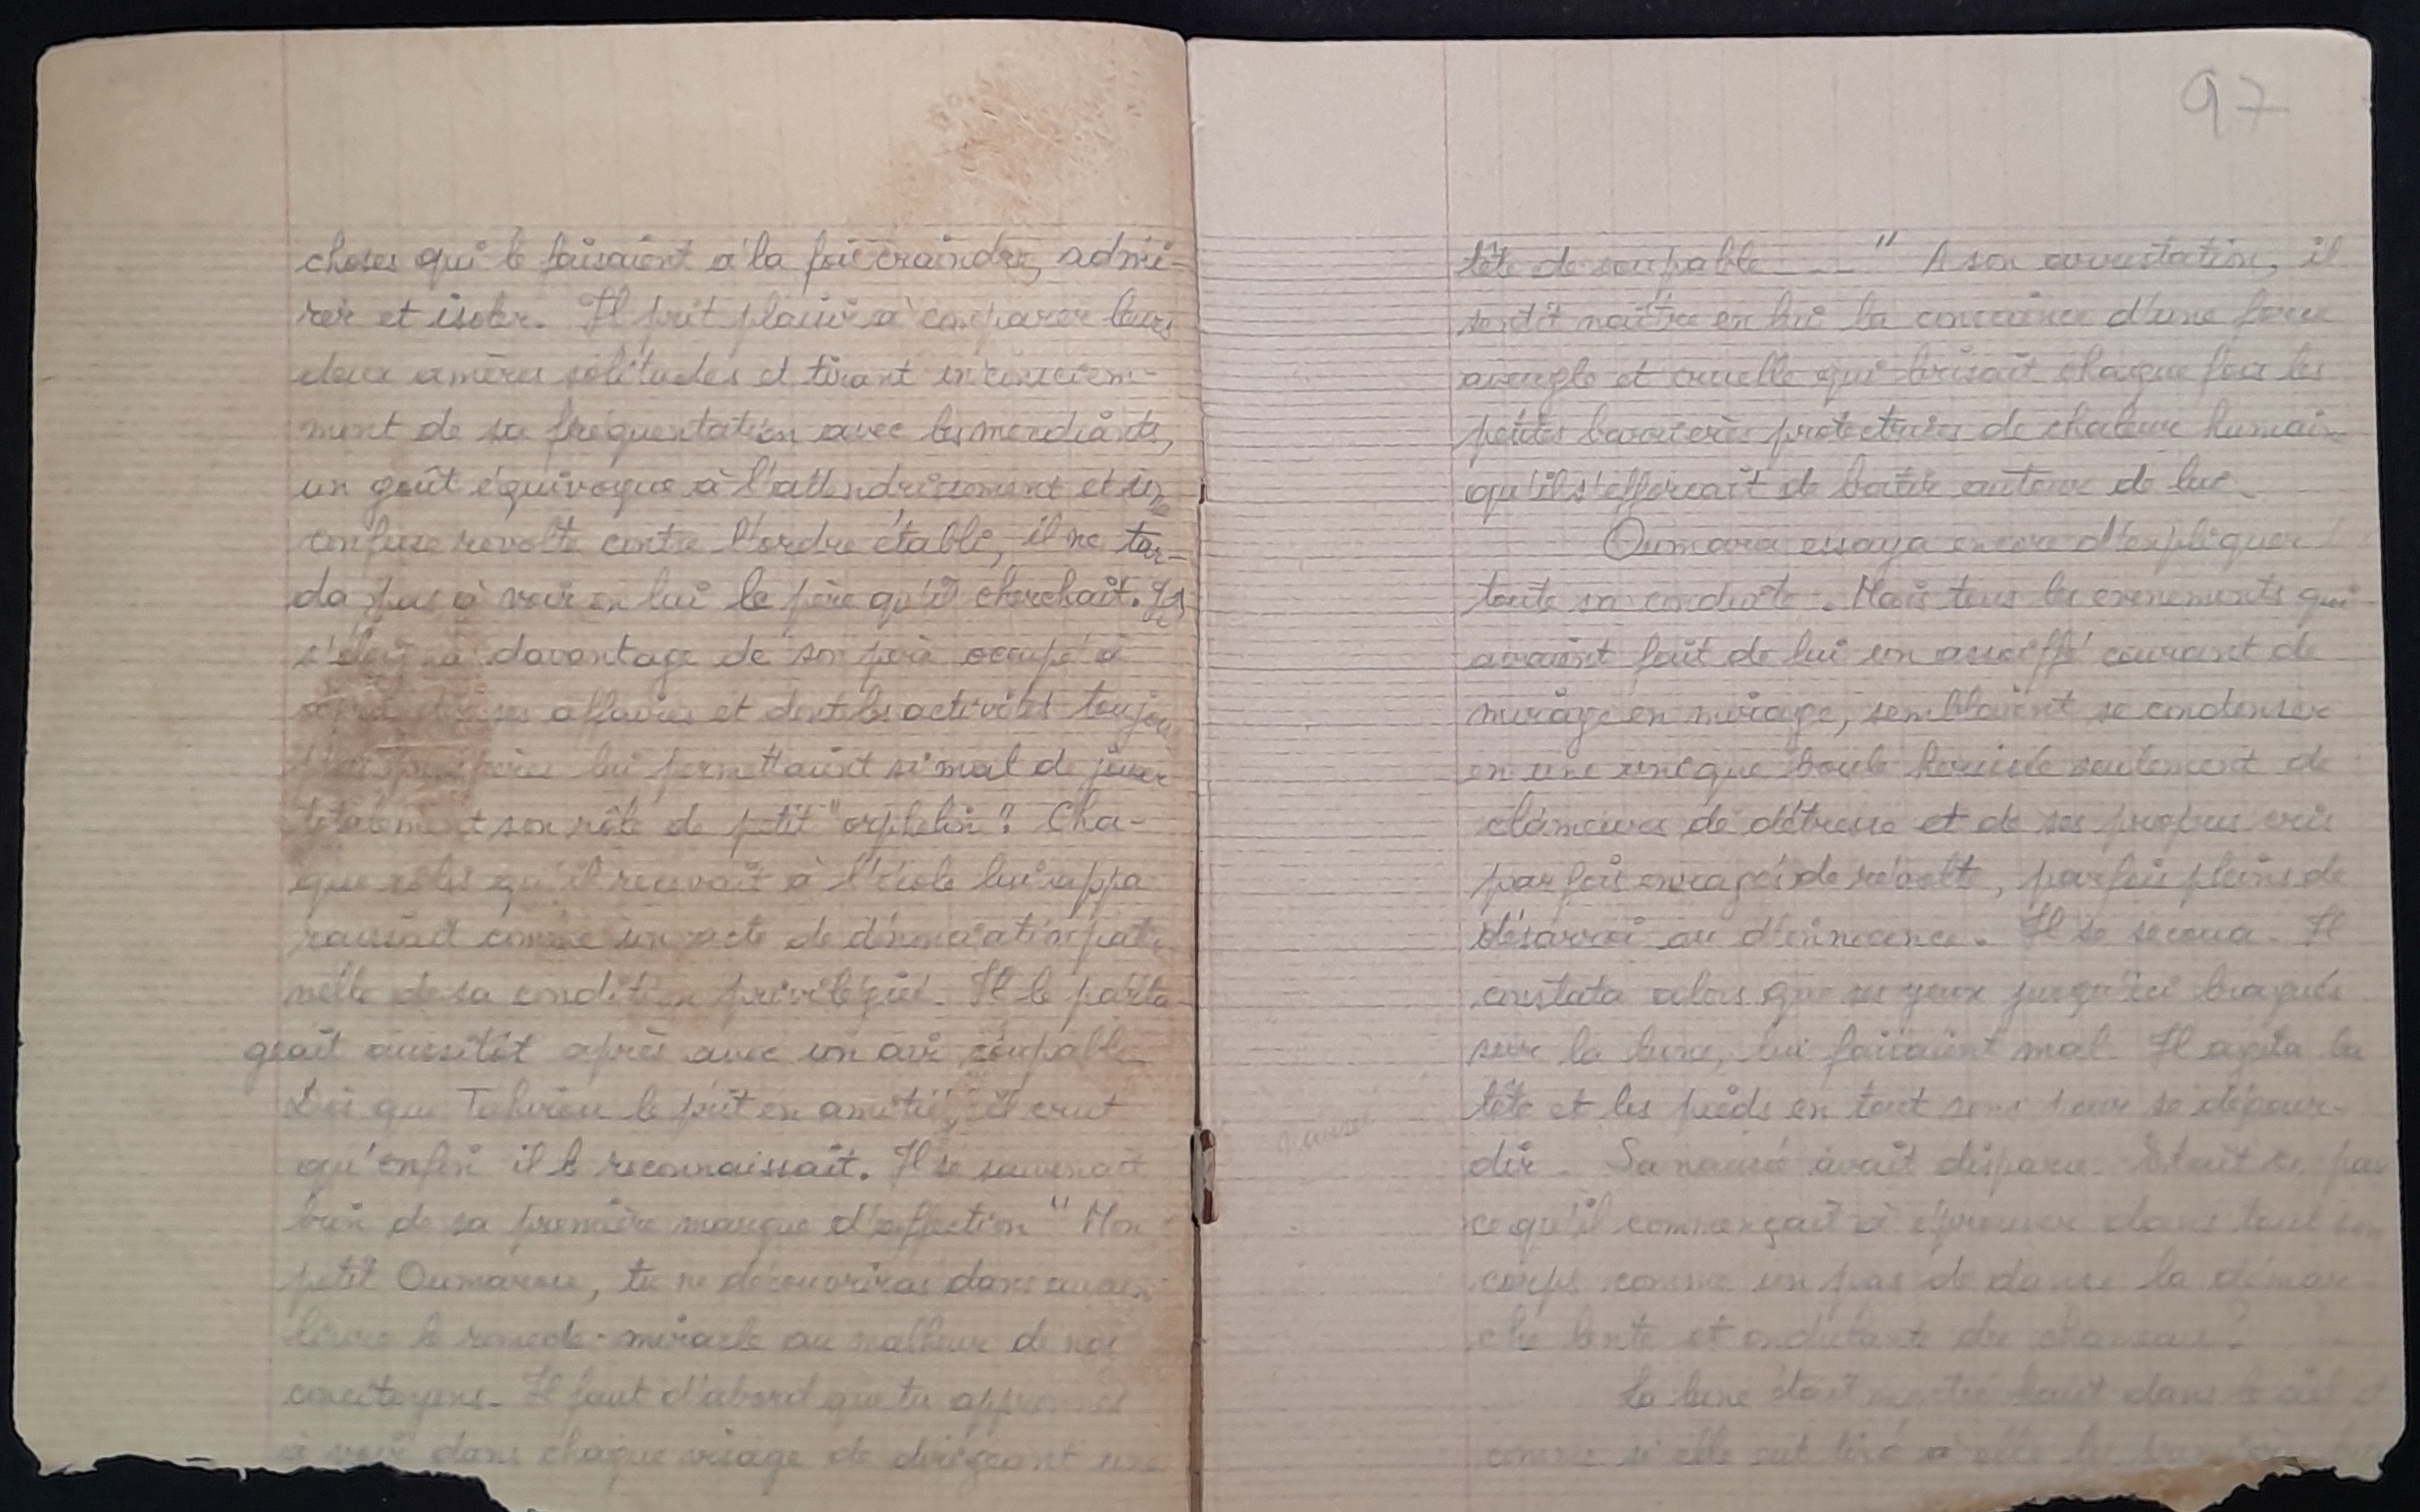 choses qui le faisaient à la fois craindre, admi-
rer et isoler. Il prit plaisir à comparer leurs
deux amères solitudes et tirant inconsciem-
ment de sa fréquentation avec les mendiants,
un goût équivoque à l'attendrissement et une
confuse révolte contre l'ordre établi, il ne tar-
da pas à voir en lui le père qu'il cherchait. Il
davantage de son père occupé à
ses affaires et dont les activités toujou
lui permettaient si mal de jouer
totalement son rôle de petit "orphelin". Cha-
que colis qu'il recevait à l'école lui appa
raissait comme un acte de dénonciation pater
nelle de sa condition privilégiée. Il le parta-
geait aussitôt après avec un air coupable
Dès que le prit en amitié, il crut
qu'enfin il le reconnaissait. Il se souvenait
bien de sa première marque d'affection "Mon
petit Oumarou, tu ne découvriras dans aucun
livre le remède-miracle au malheur de nos
concitoyens. Il faut d'abord que tu apprennes
à voir dans chaque visage de dirigeant une
97
tête de coupable ___" A son arrestation, il
sentit naître en lui la conscience d'une force
aveugle et cruelle qui brisait chaque fois les
petites barrières protectrices de chaleur humai-
qu'il s'efforçait de batir autour de lui.
Oumarou essaya encore d'expliquer
toute sa conduite. Mais tous les evenements qui
avaient fait de lui un assoiffé courant de
mirage en mirage, semblaient se condenser
en une unique boule herissée seulement de
clameurs de détresse et de ses propres cris
parfois enragés de révolte, parfois pleins de
désarroi ou d'innocence. Il se secoua. Il
constata alors que ses yeux jusqu'ici braqués
sur la lune, lui faisaient mal. Il agita la
tête et les pieds en tout sens pour se dégour-
dir. Sa nausée avait disparu. Etait-ce par
ce qu'il commençait à éprouver dans tout son
corps comme un pas de danse la démar-
che lente et ondulante du chameau?
La lune était montée haut dans le ciel et
comme si elle eut tiré à elle